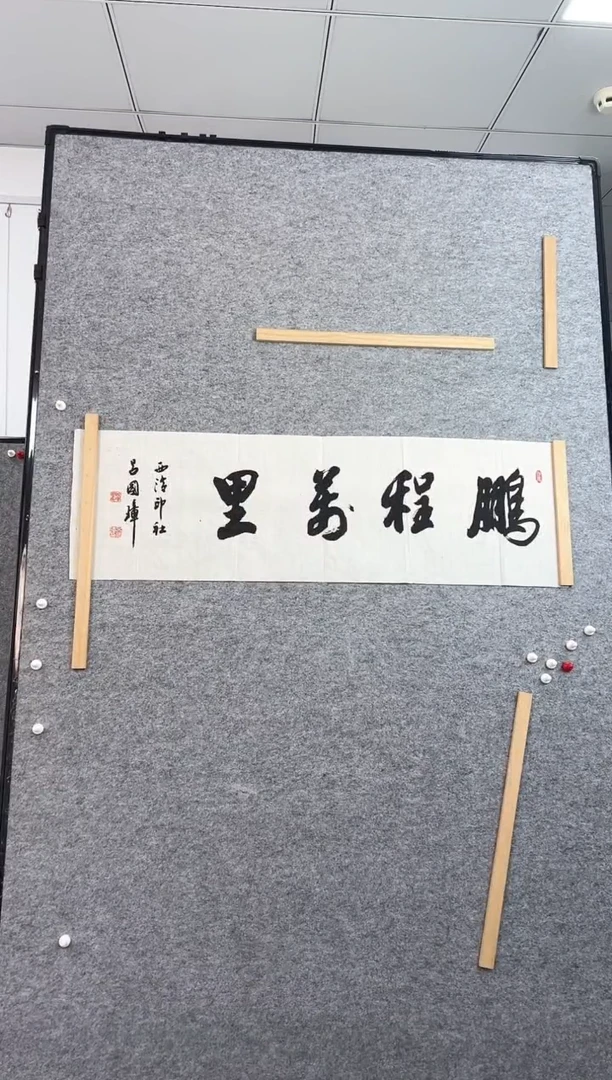 鹏程萬里
西泠印社
吕國璋